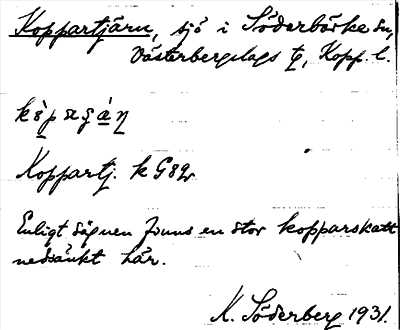 Koppartjärn, sjö i Söderbärke sn,
Västerbergslags tg, Kopp. l.
Koppartj. k G89v
Enligt sägnen finns en stor kopparskatt
nedsänkt här.
K. Söderberg 1931.